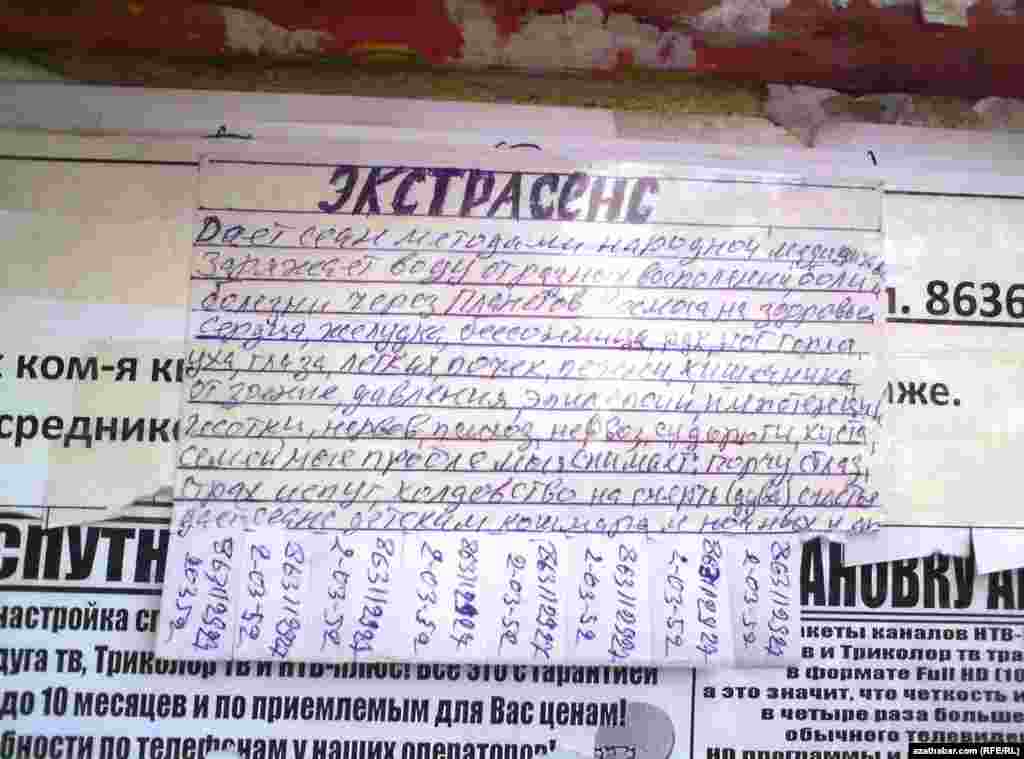 ЭКСТРАСЕНС
Дает сеан методами народной
Заряжает воду от разных восполений боли
болезни через Планетов на здоровье
сердца желудка, бессонница, рак, нос, горла,
уха, глаза, легких, почек, печени, кишечника,
от давления, эпилепсии, импотенции
чесотки, нервов, психоз, судороги,
семейные проблемы, снимает: порчу сглаз,
испуг, колдовство на смерть (дува) счастье
дает сеанс детским кошмара и ночных
863112924
2-03-52
863112924
2-03-52
863112924
2-03-52
863112924
2-03-52
863112924
2-03-52
863112924
2-03-52
863112924
2-03-52
863112924
2-03-52
. 8636
ком-я
же.
СПУТН
настройка
дуга тв, Триколор тв и НТВ-плюс! Все это с гарантией
до 10 месяцев и по приемлемым для Вас ценам!
бности по телефонам у наших операторов!
АНОВКУ
кеты каналов НТВ-
в и Триколор тв тра
в формате Full HD (10
а это значит, что четкость и
в четыре раза больше
обычного телевиде
но программы и
azathabar.com (RFE/RL)